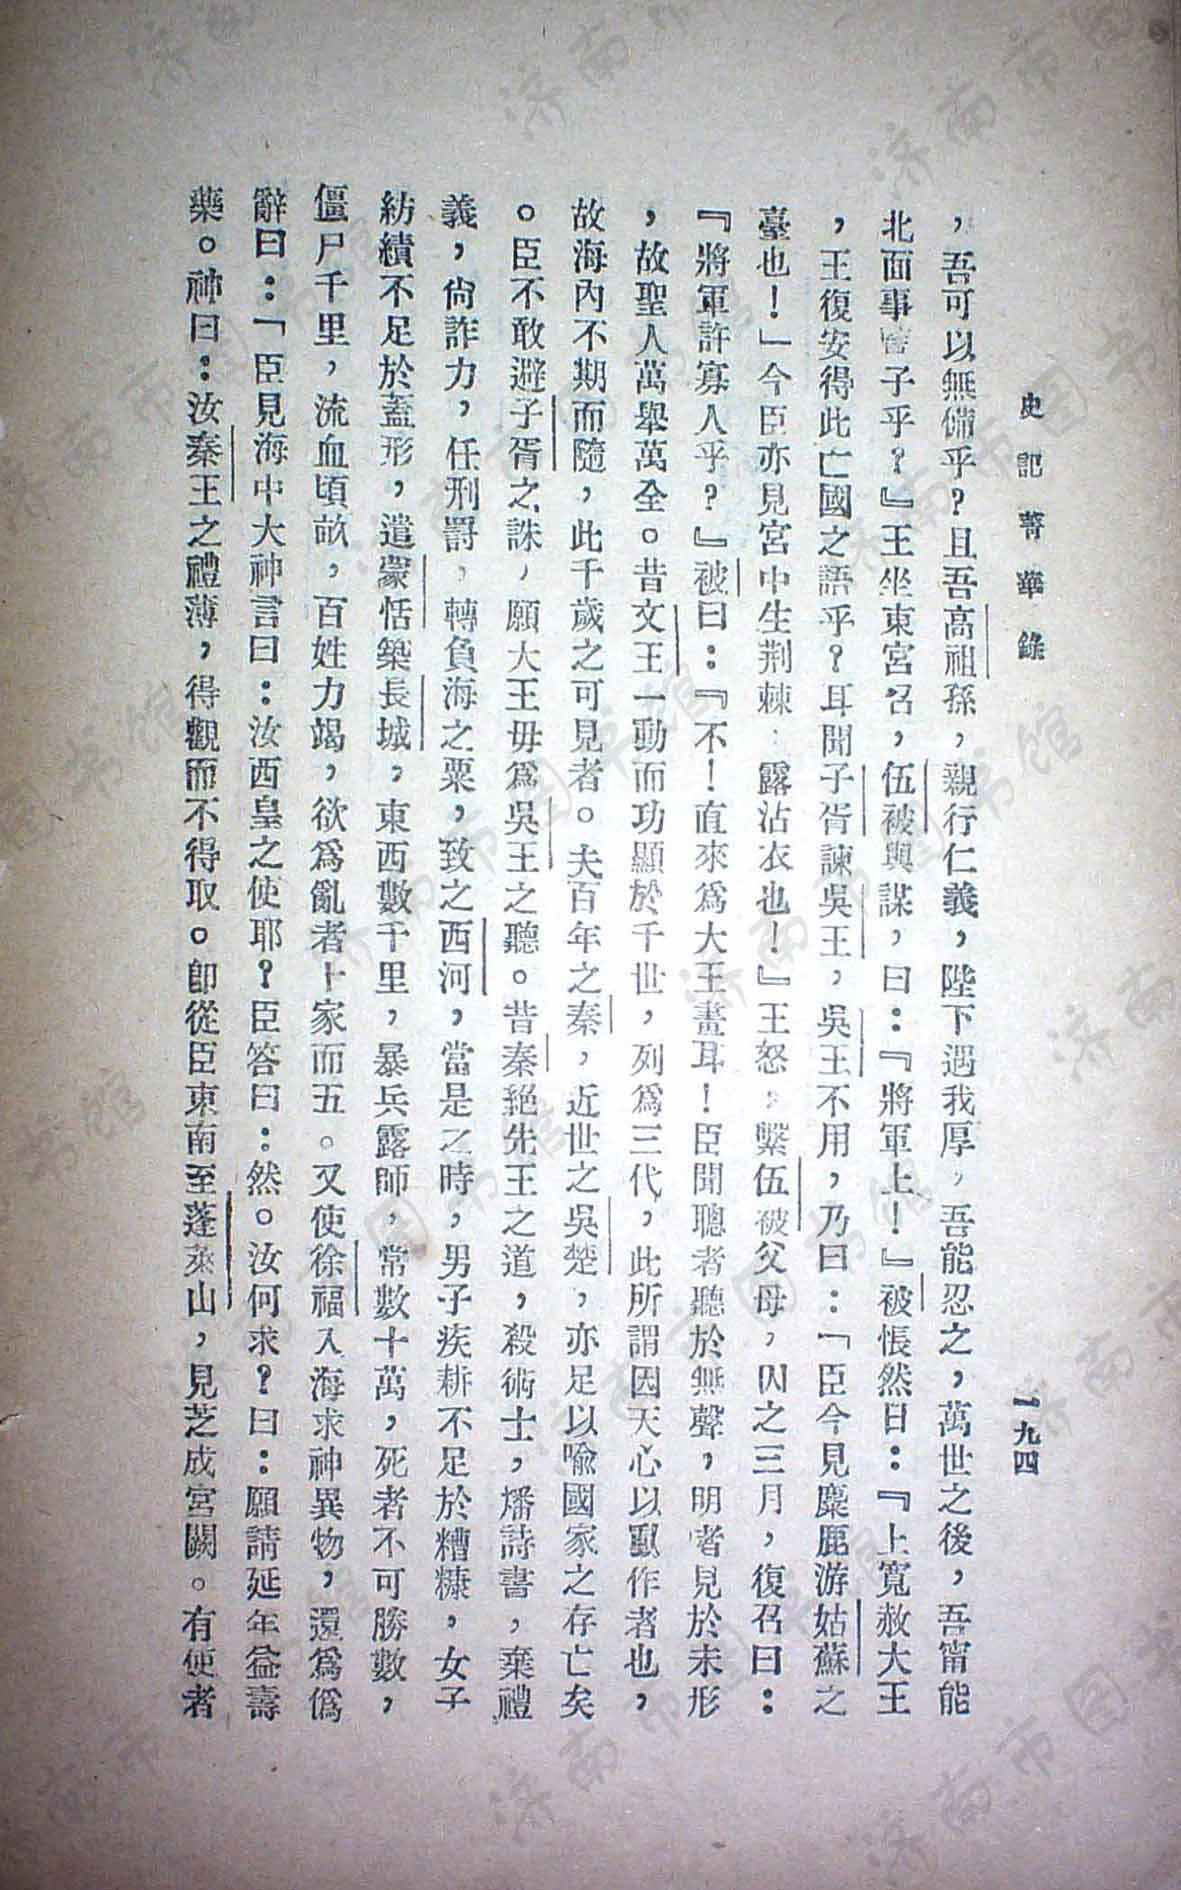 史記菁華錄
一九四
，吾可以無備乎？且吾高祖孫，親行仁義，陛下遇我厚，吾能忍之，萬世之後，吾甯能
北面事豎子乎？』王坐東宮召，伍被與謀，曰：『將軍上！』被悵然曰：『上寬赦大王
，王復安得此亡國之語乎？耳聞子胥諫吳王，吳王不用，乃曰：「臣今見麋鹿游姑蘇之
臺也！」今臣亦見宮中生荆棘，露沾衣也！』王怒，繫伍被父母，囚之三月，復召曰：
『將軍許寡人乎？』被曰：『不！直來爲大王畫耳！臣聞聰者聽於無聲，明者見於未形
，故聖人萬舉萬全。昔文王一動而功顯於千世，列爲三代，此所謂因天心以動作者也，
故海內不期而隨，此千歲之可見者。夫百年之秦，近世之吳楚，亦足以喩國家之存亡矣
。臣不敢避子胥之誅，願大王毋爲吳王之聽。昔秦絕先王之道，殺術士，燔詩書，棄禮
義，尙詐力，任刑罰，轉負海之粟，致之西河，當是之時，男子疾耕不足於糟糠，女子
紡績不足於蓋形，遣蒙恬築長城，東西數千里，暴兵露師，常數十萬，死者不可勝數，
僵尸千里，流血頃畝，百姓力竭，欲爲亂者十家而五。又使徐福入海求神異物，還爲僞
辭曰：「臣見海中大神言曰：汝西皇之使耶？臣答曰：然。汝何求？曰：願請延年益壽
藥。神曰：汝秦王之禮薄，得觀而不得取。卽從臣東南至蓬萊山，見芝成宮闕。有使者
济南市图书馆